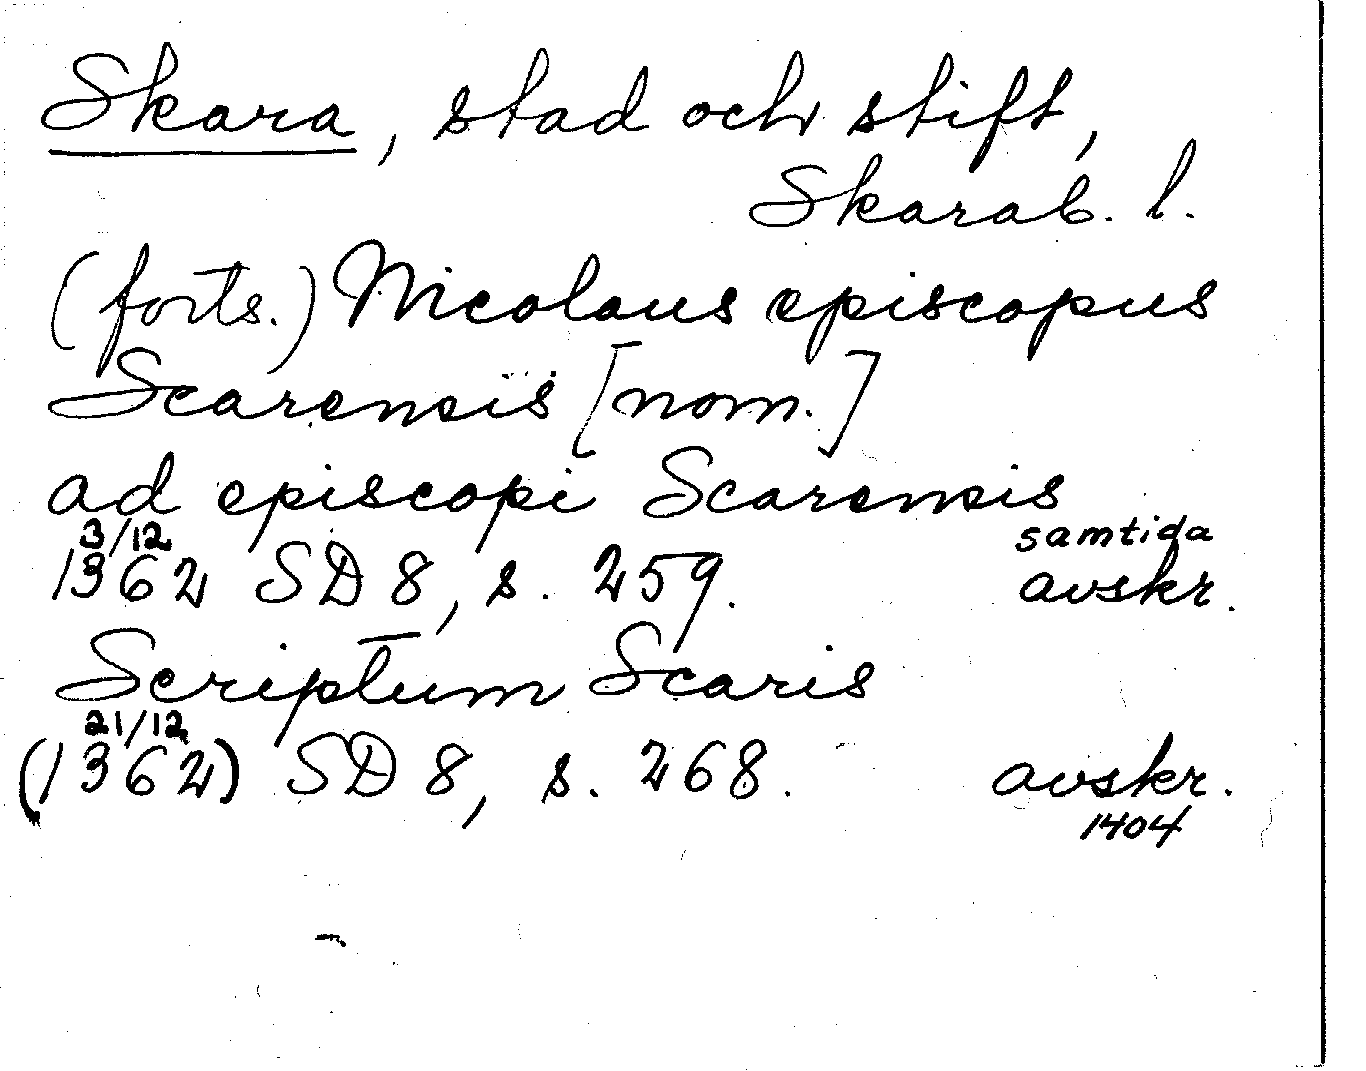 Skara, stad och stift,
Skarab. l.
(forts.) Nicolaus episcopus
Scarensis [nom.]
ad episcopi Scarensis
3/12 samtida
1362 SD 8, s. 259. avskr.
Scriptum Scaris
21/12
(1362) SD 8, s. 268. avskr.
1404